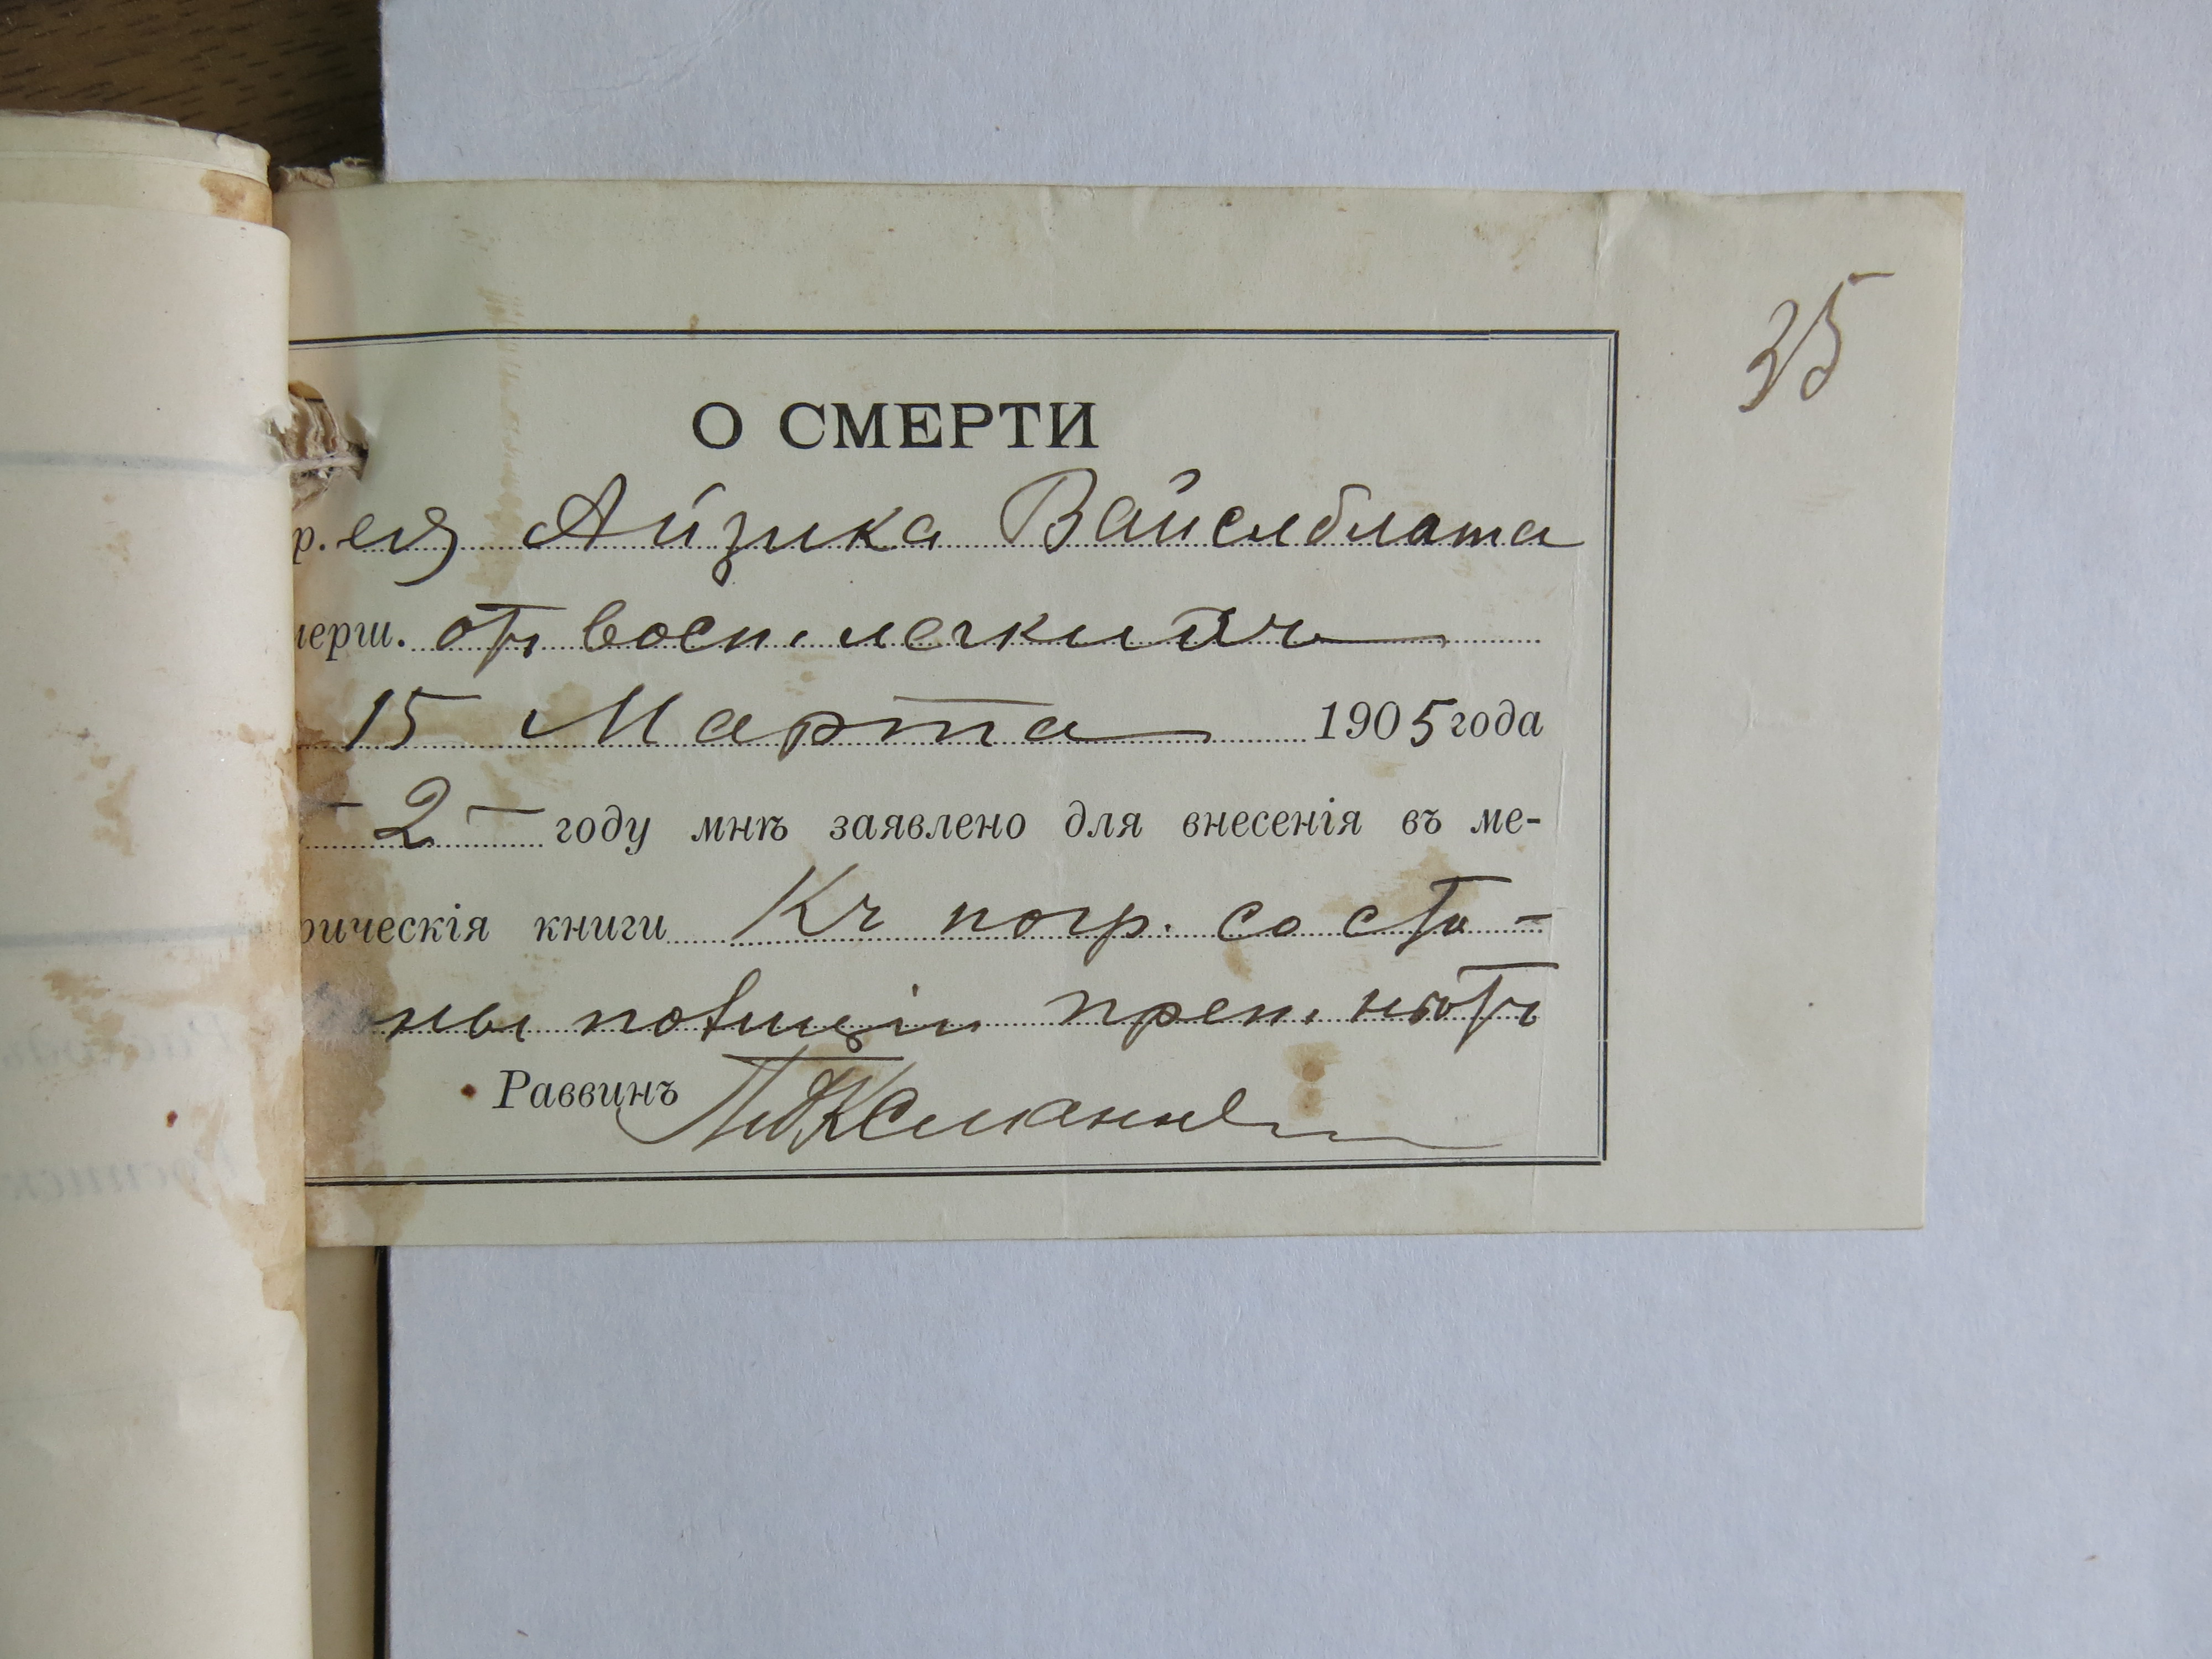 35
О СМЕРТИ
р. ея Айзика Вайсблата
мерш. отъ восп. легкихъ
15 Марта 1905 года
- 2 - году мнѣ заявлено для внесенія въ ме-
рическія книги Къ погр. со сто-
ны полиціи преп. нѣтъ
Раввинъ